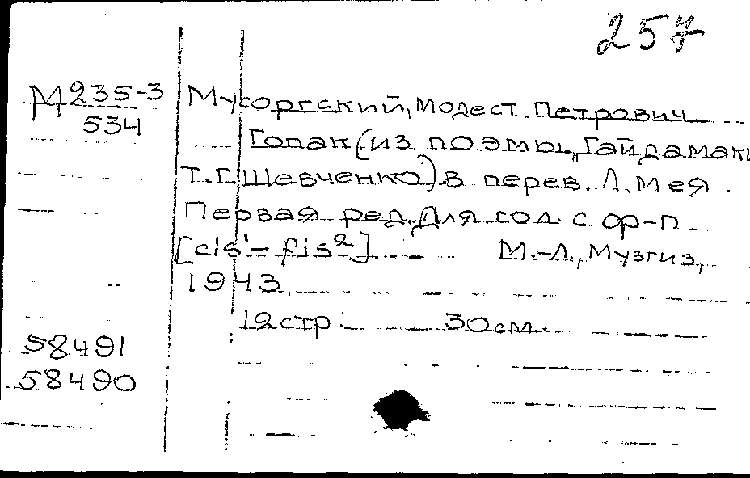 257
М235-3
534
Мусоргский, Модест Петрович
Гопак (из поэмы "Гайдамаки
Т.Г. Шевченко) в перев. Л. Мея.
Первая ред. Для сол. с ф-п
[cis¹ - fis²] М.-Л., Музгиз,
1943
12 стр. 30 см.
58491
58490